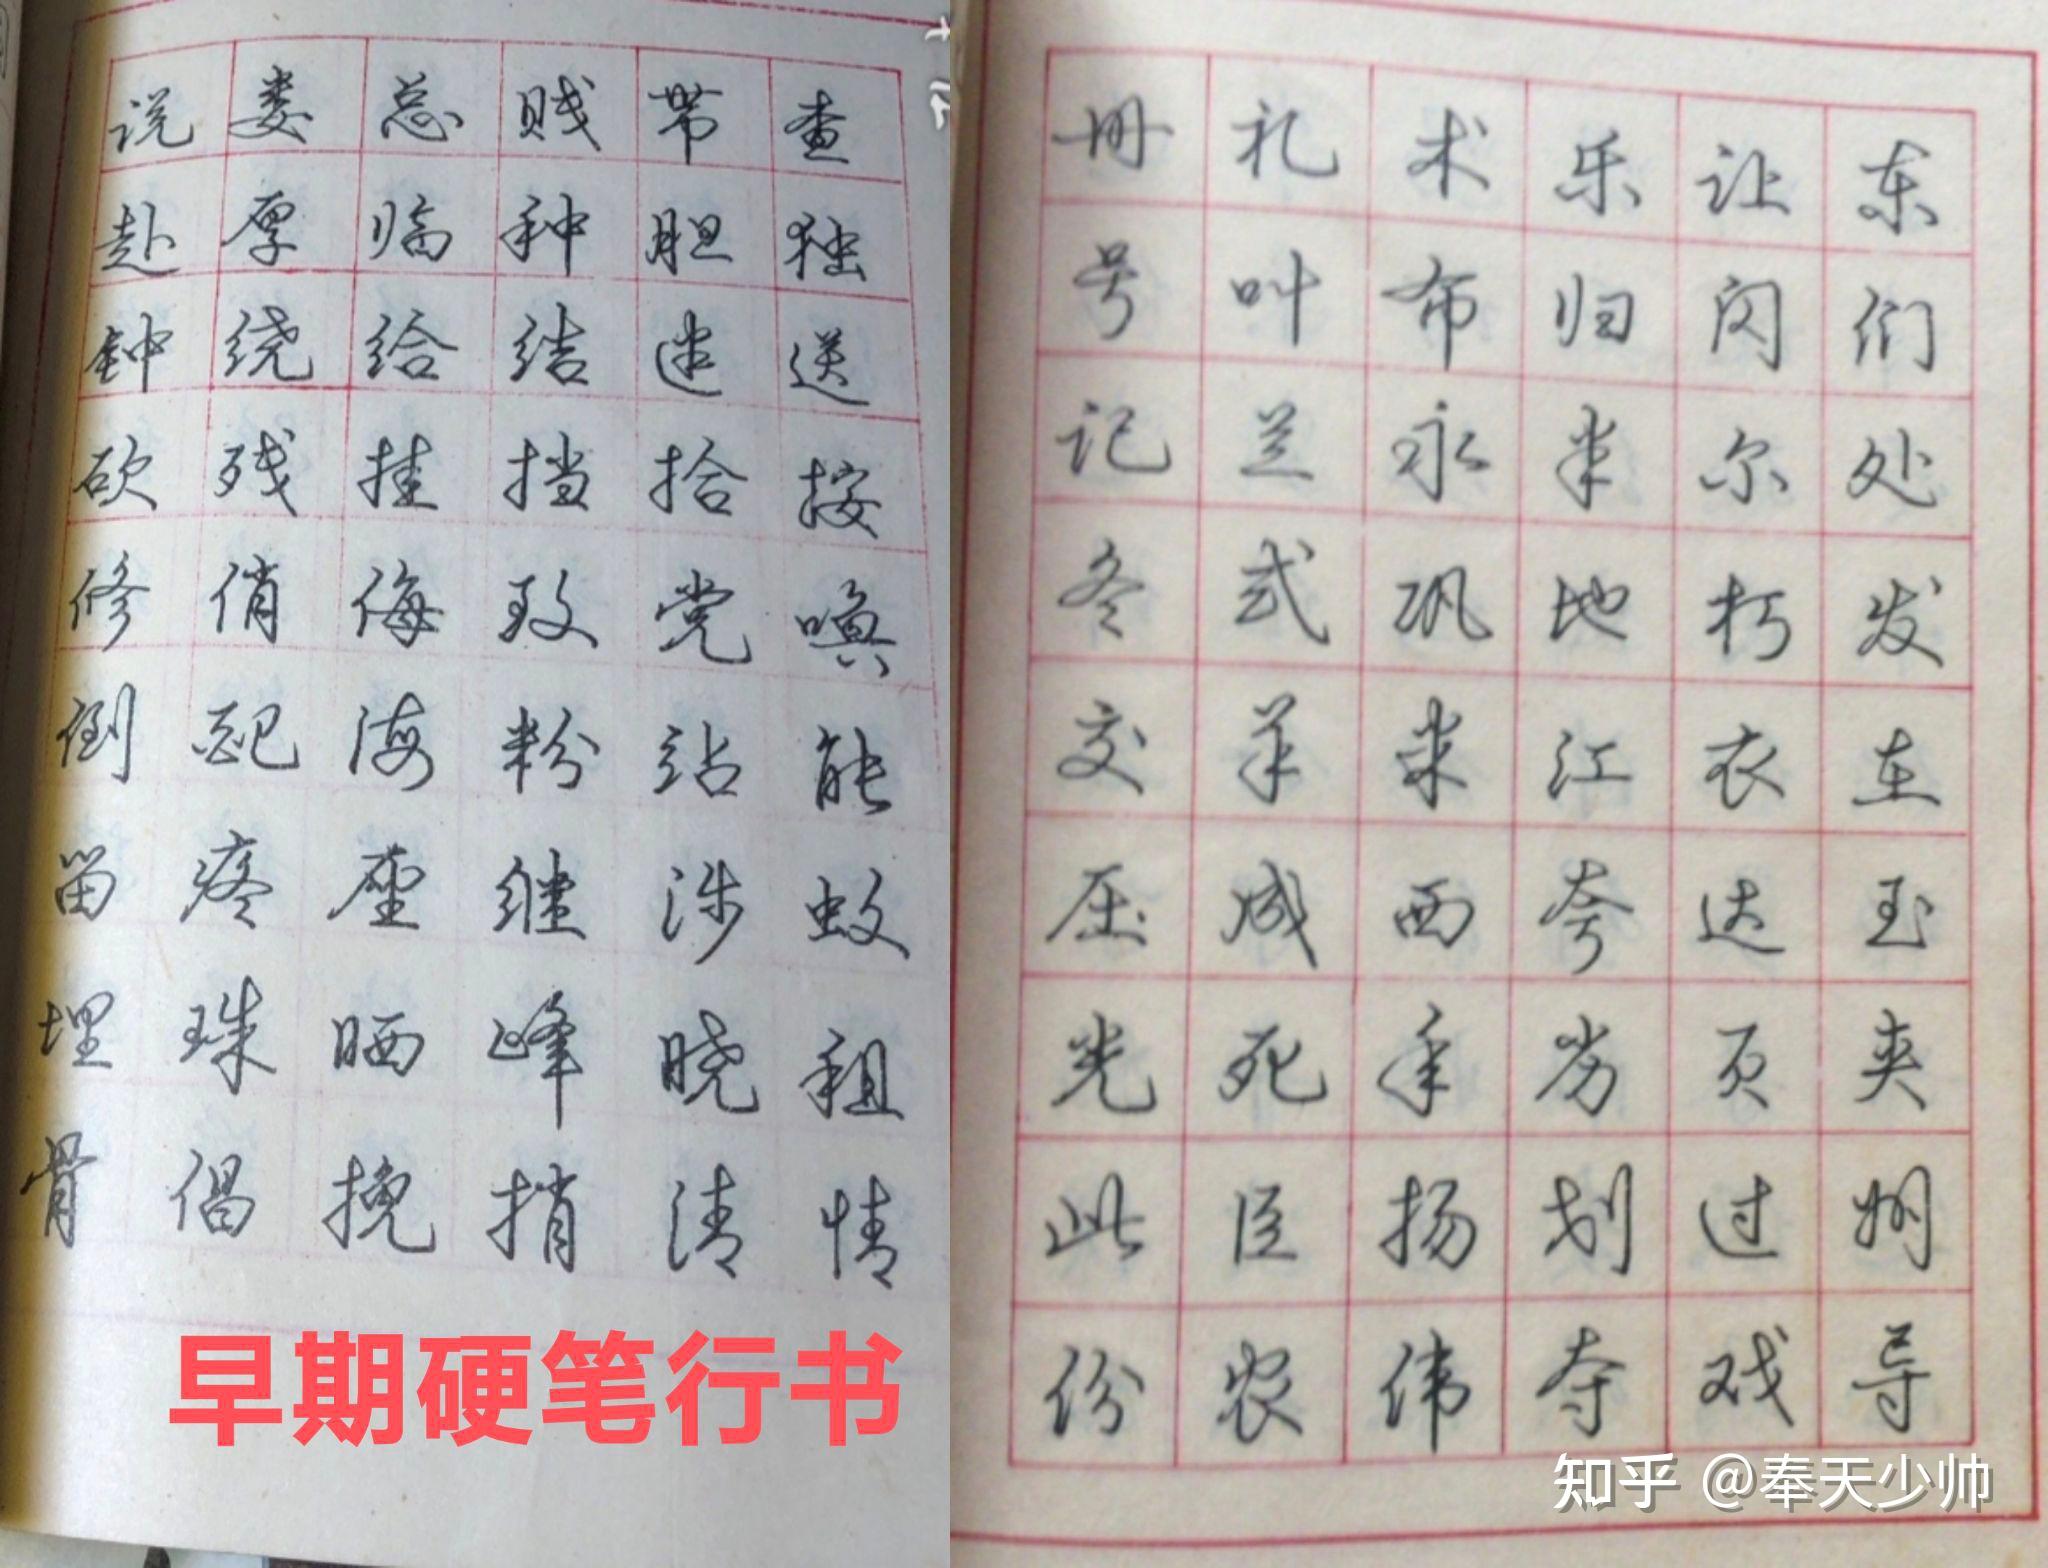 说娄总贱带查
赴厚临种胆独
钟绕给结迷送
砍残挂挡拾按
修俏侮致党唤
倒配海粉站能
笛疼座继涉蚊
埋珠晒峰晓租
骨倡挽捎清情
早期硬笔行书
册礼术乐让东
号叶布归闪们
记兰永半尔处
冬式巩地朽发
交羊米江衣在
压成西夸达玉
光死年劣页夹
此臣扬划过
份农伟夺戏导
知乎 @奉天少帅